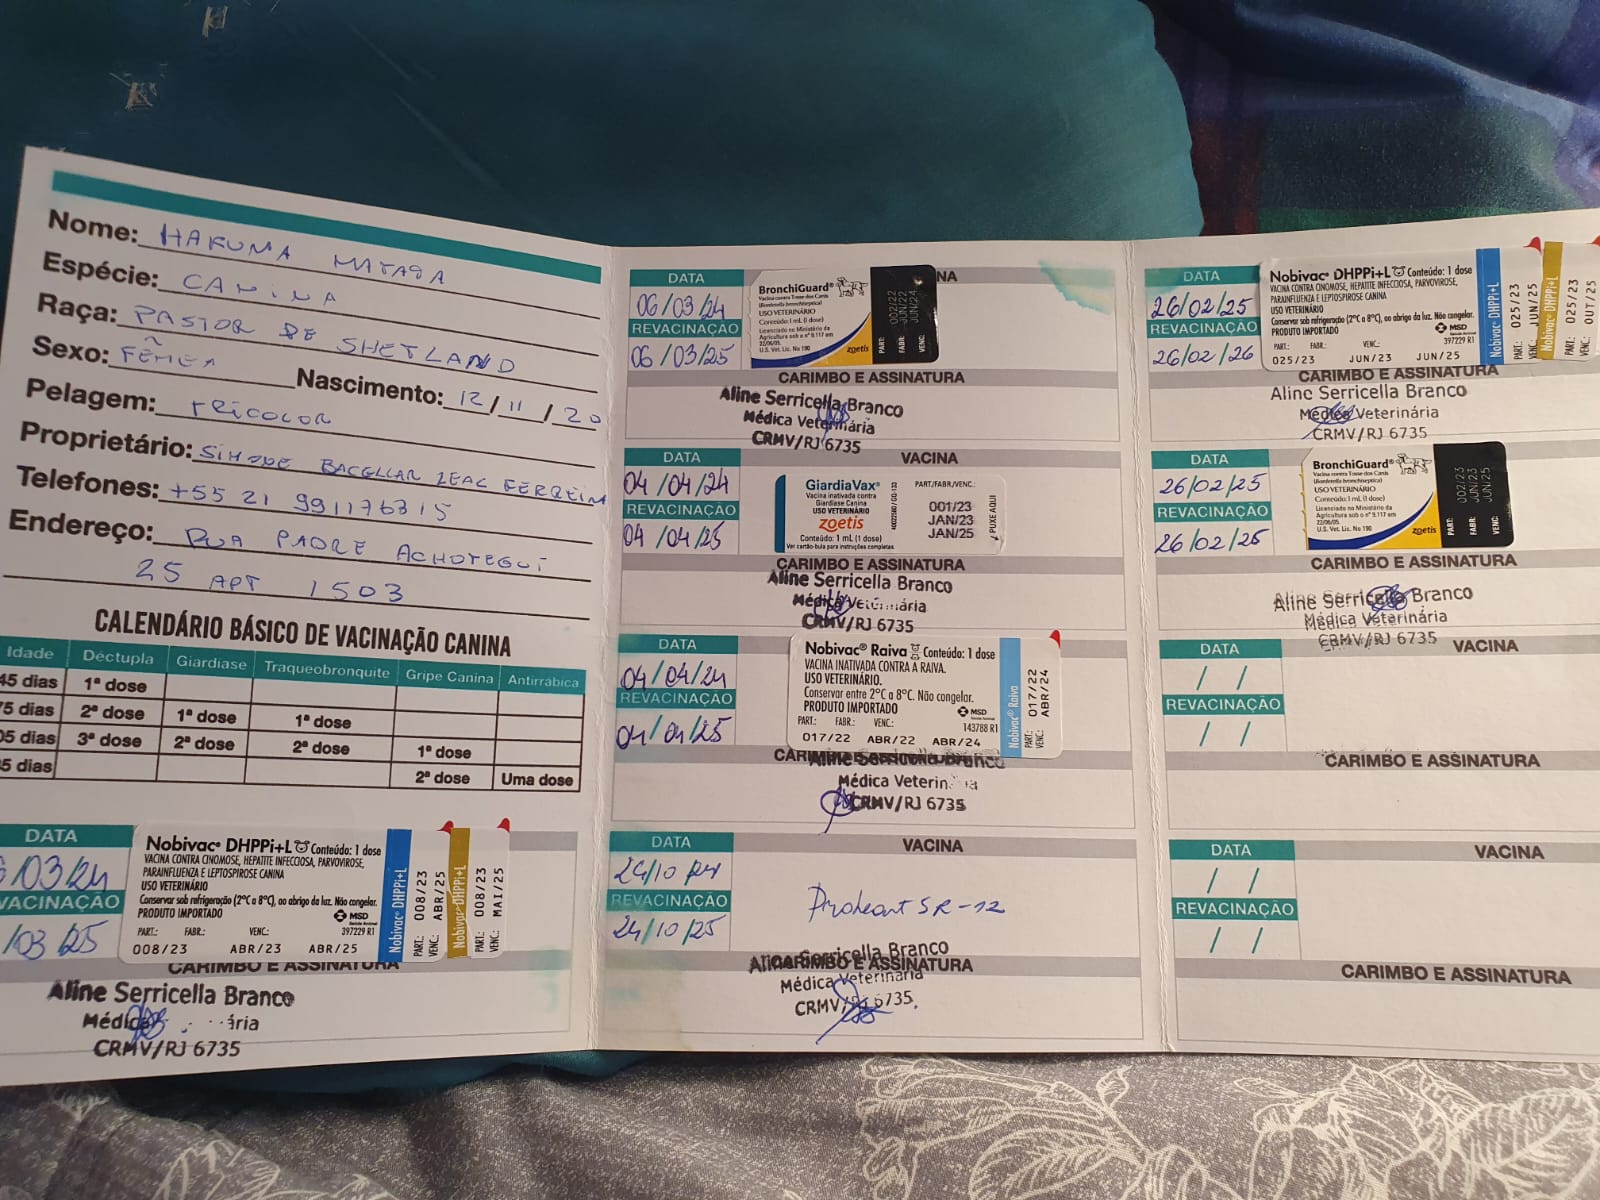 Nome: HAKUNA MATATA
Espécie: CANINA
Raça: PASTOR DE SHETLAND
Sexo: FÊMEA
Nascimento: 12/11/20
Pelagem: TRICOLOR
Proprietário: SIMONE BACELLAR LEAL FERREIRA
Telefones: +55 21 991176315
Endereço: RUA PADRE ACHOTEGUI
25 APT 1503
CALENDÁRIO BÁSICO DE VACINAÇÃO CANINA
Idade Déctupla Giardiase Traqueobronquite Gripe Canina Antirrábica
45 dias 1ª dose
75 dias 2ª dose 1ª dose 1ª dose
05 dias 3ª dose 2ª dose 2ª dose 1ª dose
5 dias 2ª dose Uma dose
DATA
/03/24
VACINAÇÃO
/03/25
Nobivac® DHPPi+L Conteúdo: 1 dose
VACINA CONTRA CINOMOSE, HEPATITE INFECCIOSA, PARVOVIROSE,
PARAINFLUENZA E LEPTOSPIROSE CANINA
USO VETERINÁRIO
Conservar sob refrigeração (2°C a 8°C), ao abrigo da luz. Não congelar.
PRODUTO IMPORTADO
MSD
397229 R1
PART.: FABR.: VENC.:
008/23 ABR/23 ABR/25
Nobivac® DHPPi+L
PART.: 008/23
VENC.: ABR/25
Nobivac® DHPPi+L
PART.: 008/23
VENC.: MAI/25
CARIMBO E ASSINATURA
Aline Serricella Branco
Médica ária
CRMV/RJ 6735
DATA
06/03/24
REVACINAÇÃO
06/03/25
NA
BronchiGuard®
Vacina contra Tosse dos Canis
(Bordetella bronchiseptica)
USO VETERINÁRIO
Conteúdo: 1 mL (1 dose)
Licenciado no Ministério da
Agricultura sob o nº 9.117 em
22/06/05.
U.S. Vet. Lic. No 190
zoetis
PART: 002/22
FABR: JUN/22
VENC: JUN/24
CARIMBO E ASSINATURA
Aline Serricella Branco
Médica Veterinária
CRMV/RJ 6735
DATA
04/04/24
REVACINAÇÃO
04/04/25
VACINA
GiardiaVax®
Vacina inativada contra
Giardiase Canina
USO VETERINÁRIO
zoetis
Conteúdo: 1 mL (1 dose)
Ver cartão-bula para instruções completas
PART./FABR./VENC.:
001/23
JAN/23
JAN/25
PUXE AQUI
CARIMBO E ASSINATURA
Aline Serricella Branco
Médica Veterinária
CRMV/RJ 6735
DATA
04/04/24
REVACINAÇÃO
04/04/25
Nobivac® Raiva Conteúdo: 1 dose
VACINA INATIVADA CONTRA A RAIVA.
USO VETERINÁRIO.
Conservar entre 2°C a 8°C. Não congelar.
PRODUTO IMPORTADO
MSD
143788 R1
PART.: FABR.: VENC.:
017/22 ABR/22 ABR/24
Nobivac® Raiva
PART.: 017/22
VENC.: ABR/24
Aline Serricella Branco
Médica Veterin
CRMV/RJ 6735
DATA
24/10
REVACINAÇÃO
24/10/25
VACINA
Proheart SR-12
CARIMBO E ASSINATURA
Aline Serricella Branco
Médica Veterinária
CRMV/RJ 6735
DATA
26/02/25
REVACINAÇÃO
26/02/26
Nobivac® DHPPi+L Conteúdo: 1 dose
VACINA CONTRA CINOMOSE, HEPATITE INFECCIOSA, PARVOVIROSE,
PARAINFLUENZA E LEPTOSPIROSE CANINA
USO VETERINÁRIO
Conservar sob refrigeração (2°C a 8°C), ao abrigo da luz. Não congelar.
PRODUTO IMPORTADO
MSD
397229 R1
PART.: FABR.: VENC.:
025/23 JUN/23 JUN/25
Nobivac® DHPPi+L
PART.: 025/23
VENC.: JUN/25
Nobivac® DHPPi+L
PART.: 025/23
VENC.: OUT/25
CARIMBO E ASSINATURA
Aline Serricella Branco
Médica Veterinária
CRMV/RJ 6735
DATA
26/02/25
REVACINAÇÃO
26/02/25
BronchiGuard®
Vacina contra Tosse dos Canis
(Bordetella bronchiseptica)
USO VETERINÁRIO
Conteúdo: 1 mL (1 dose)
Licenciado no Ministério da
Agricultura sob o nº 9.117 em
22/06/05.
U.S. Vet. Lic. No 190
zoetis
PART: 002/23
FABR: JUN/23
VENC: JUN/25
CARIMBO E ASSINATURA
Aline Serricella Branco
Médica Veterinária
CRMV/RJ 6735
DATA
/ /
REVACINAÇÃO
/ /
VACINA
CARIMBO E ASSINATURA
DATA
/ /
REVACINAÇÃO
/ /
VACINA
CARIMBO E ASSINATURA